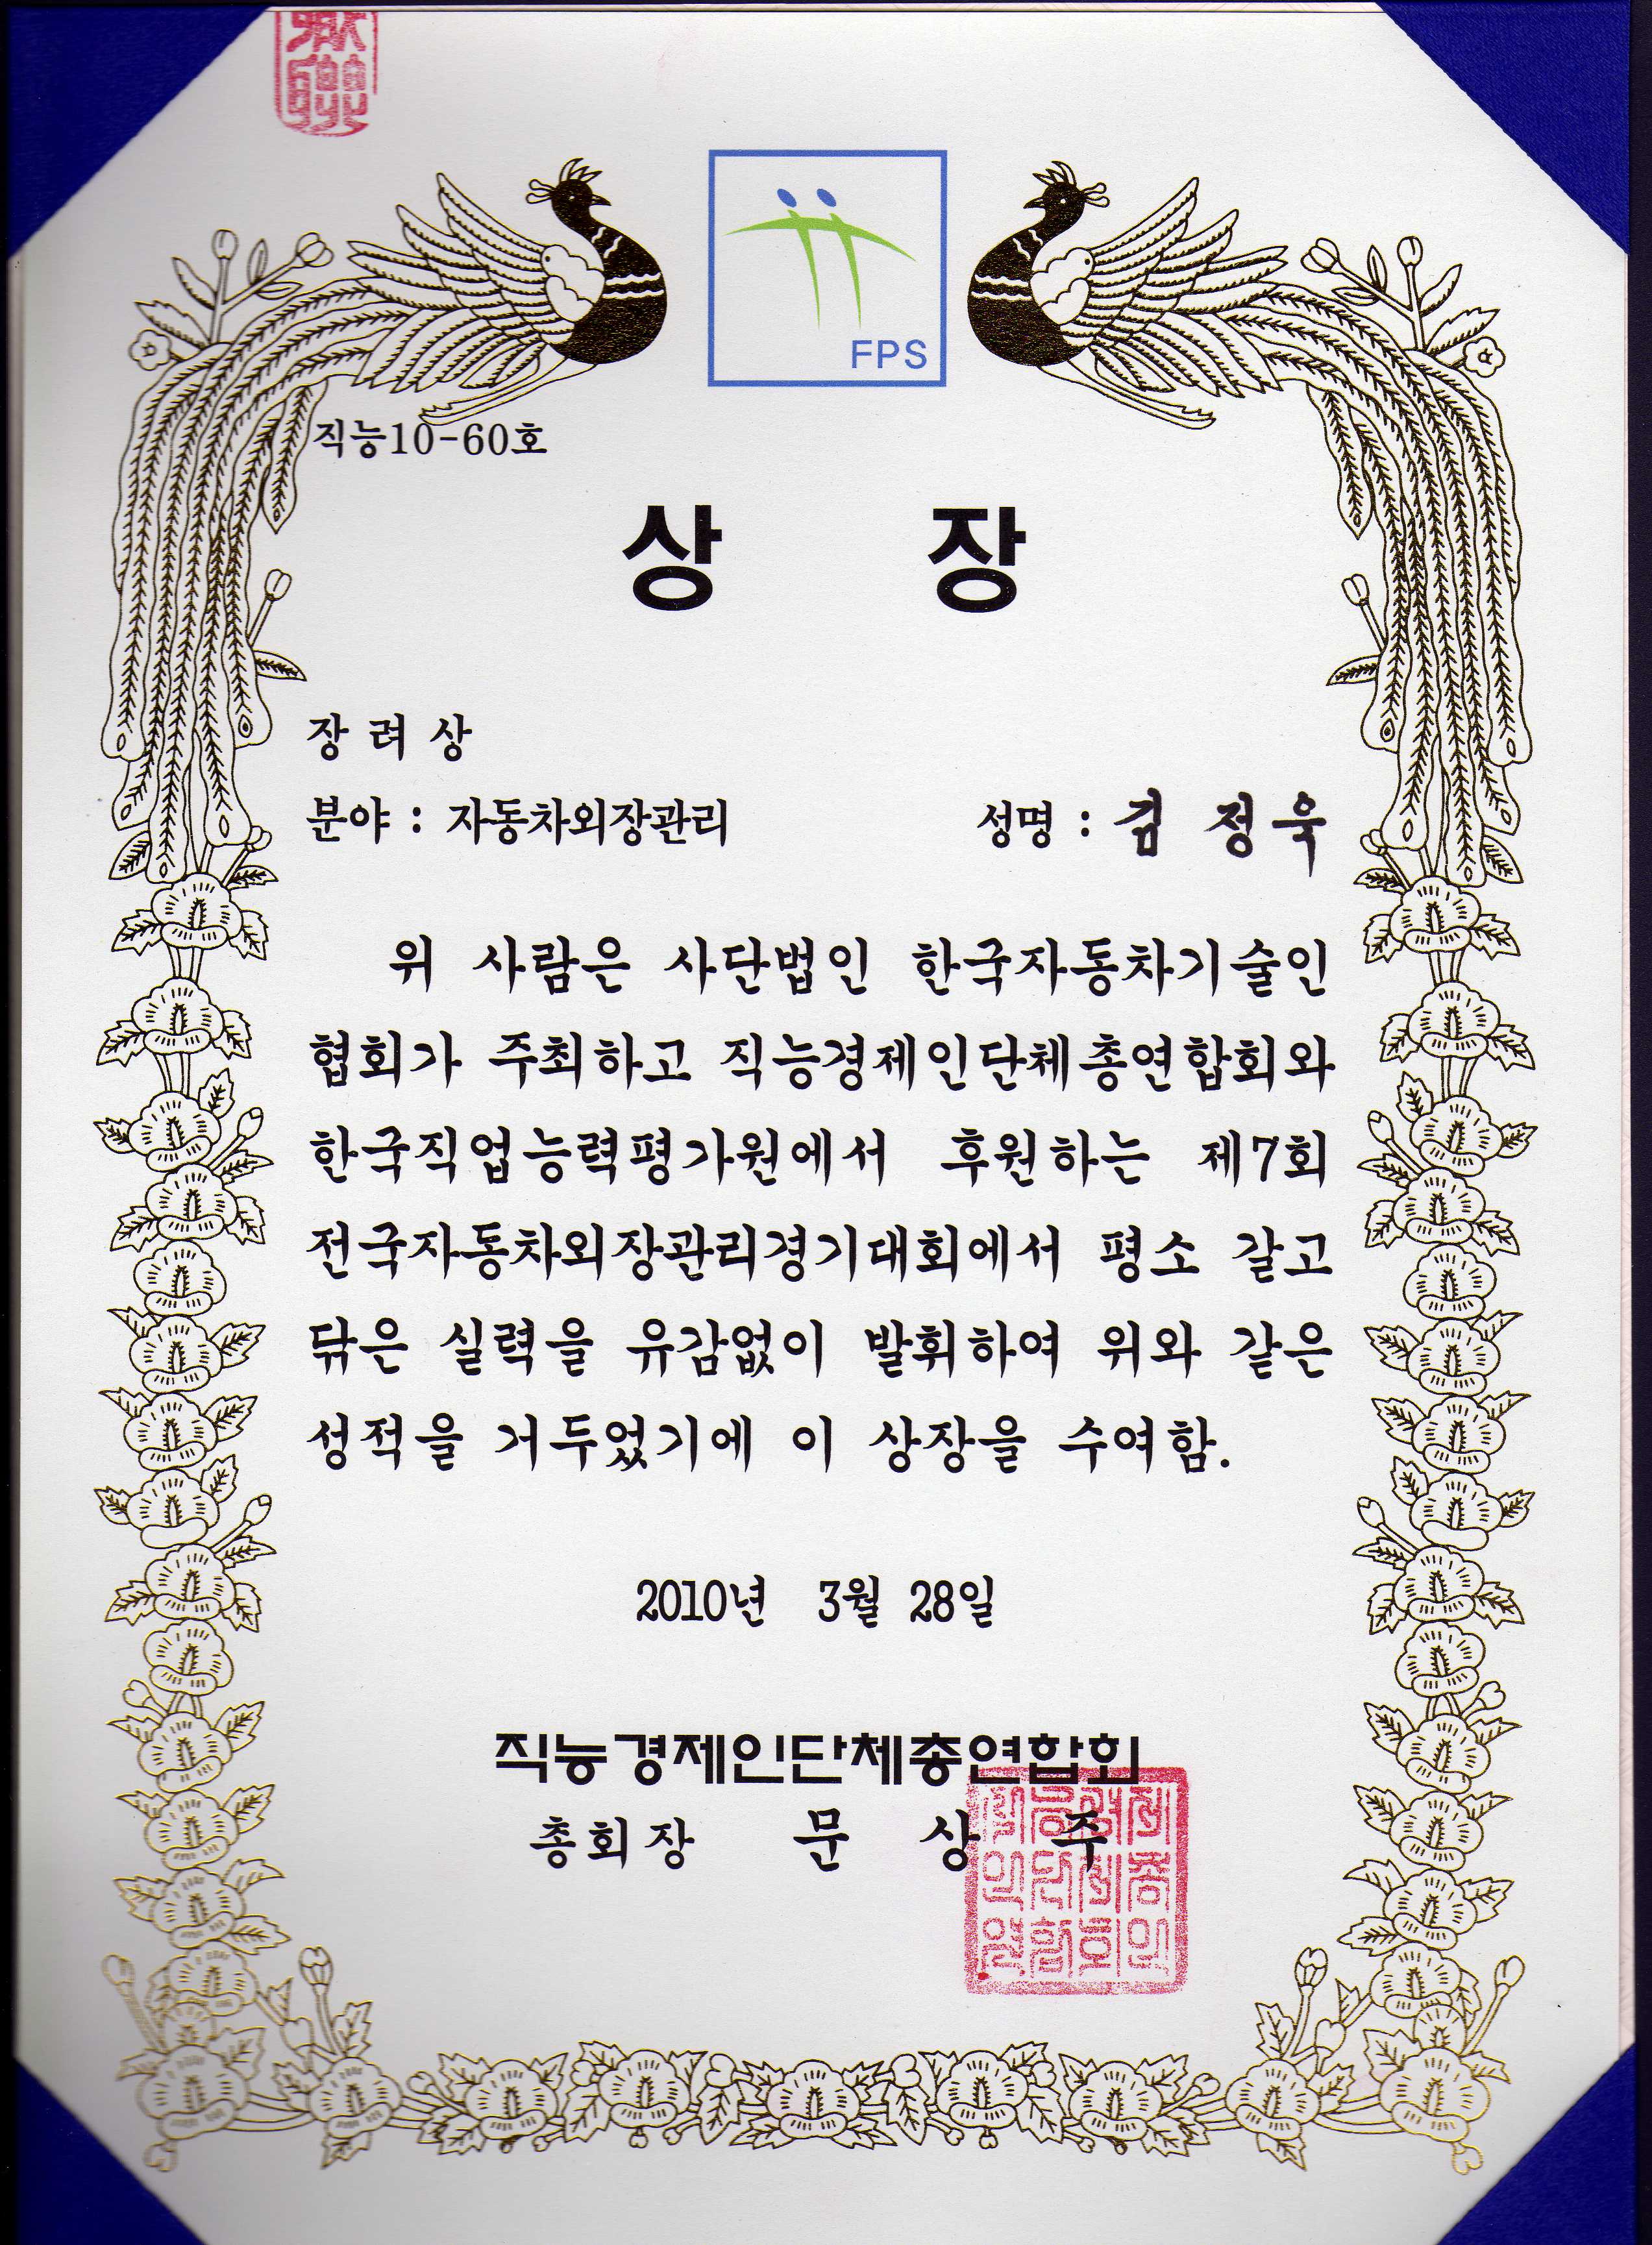 FPS
직능10-60호
상 장
장려상
분야 : 자동차외장관리
성명 : 김 정욱
위 사람은 사단법인 한국자동차기술인
협회가 주최하고 직능경제인단체총연합회와
한국직업능력평가원에서 후원하는 제7회
전국자동차외장관리경기대회에서 평소 갈고
닦은 실력을 유감없이 발휘하여 위와 같은
성적을 거두었기에 이 상장을 수여함.
2010년 3월 28일
직능경제인단체총연합회
총회장 문 상 주